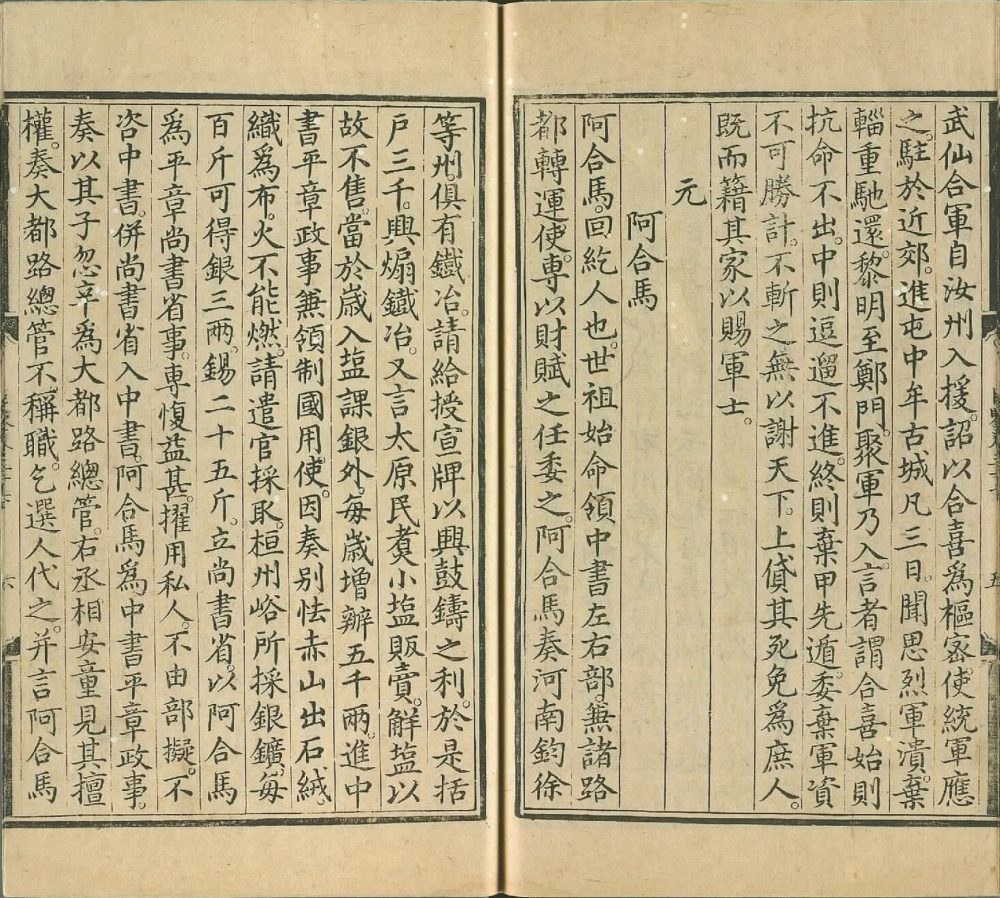 武仙合軍自汝州入援。詔以合喜爲樞密使統軍應
之。駐於近郊。進屯中牟古城凡三日。聞思烈軍潰。棄
輜重馳還。黎明至鄭門。聚軍乃入。言者謂合喜始則
抗命不出。中則逗遛不進。終則棄甲先遁。委棄軍資
不可勝計。不斬之無以謝天下。上貸其死免爲庶人。
既而籍其家以賜軍士。
元
阿合馬
阿合馬。回紇人也。世祖始命領中書左右部。兼諸路
都轉運使。專以財賦之任委之。阿合馬奏河南鈞徐
等州。俱有鐵冶。請給授宣牌以興鼓鑄之利。於是括
戶三千。興煽鐵冶。又言太原民煑小塩販賣。解塩以
故不售。當於歲入塩課銀外。每歲增辦五千兩。進中
書平章政事兼領制國用使。因奏别怯赤山出石絨。
織爲布。火不能燃。請遣官採取。桓州峪所採銀鑛。每
百斤可得銀三兩。錫二十五斤。立尚書省。以阿合馬
爲平章尚書省事。專愎益甚。擢用私人。不由部擬。不
咨中書。併尚書省入中書。阿合馬爲中書平章政事。
奏以其子忽辛爲大都路總管。右丞相安童見其擅
權。奏大都路總管不稱職。乞選人代之。并言阿合馬